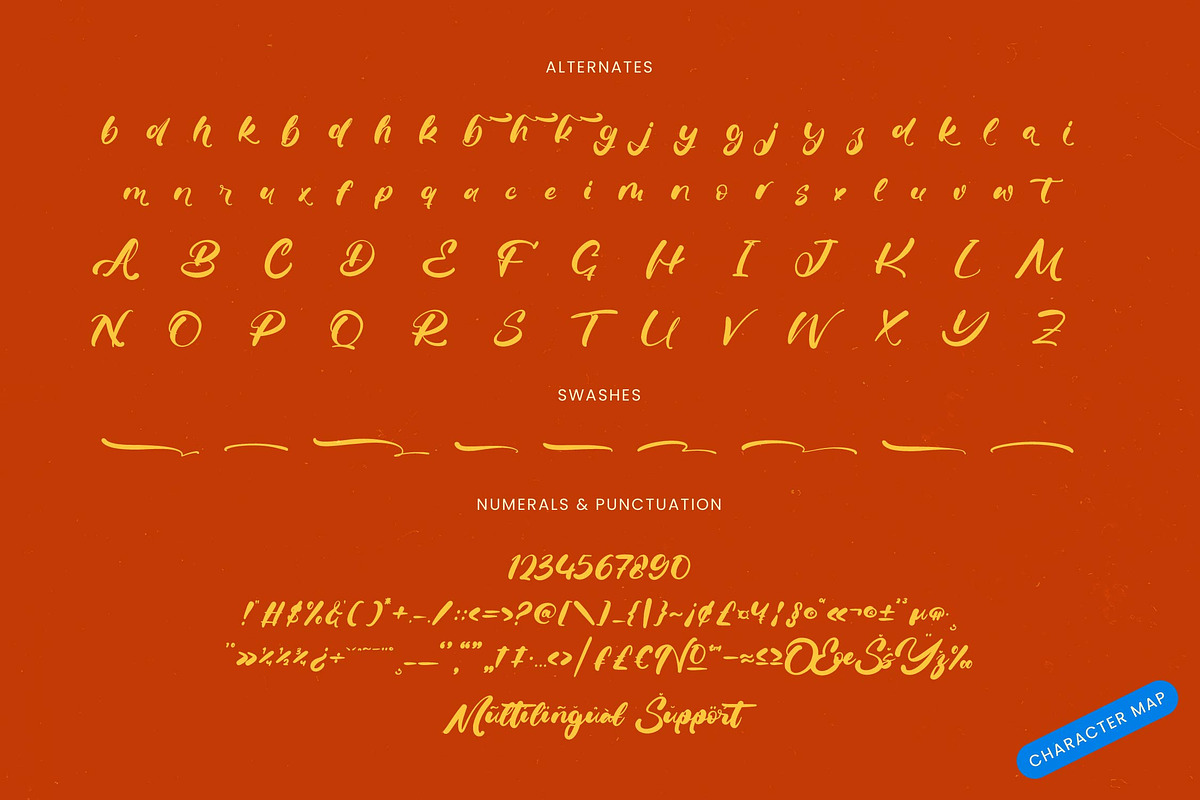 ALTERNATES
b d h k b d h k b h k g j y g j y z d k l a i
m n r u x f p q a c e i m n o r s x l u v w T
A B C D E F G H I J K L M
N O P Q R S T U V W X Y Z
SWASHES
NUMERALS & PUNCTUATION
1234567890
!"#$%&'()*+.-./:;<=>?@[\]_{|}~¡¢£¤¥¦§
Mültilingüàl Süppört
CHARACTER MAP